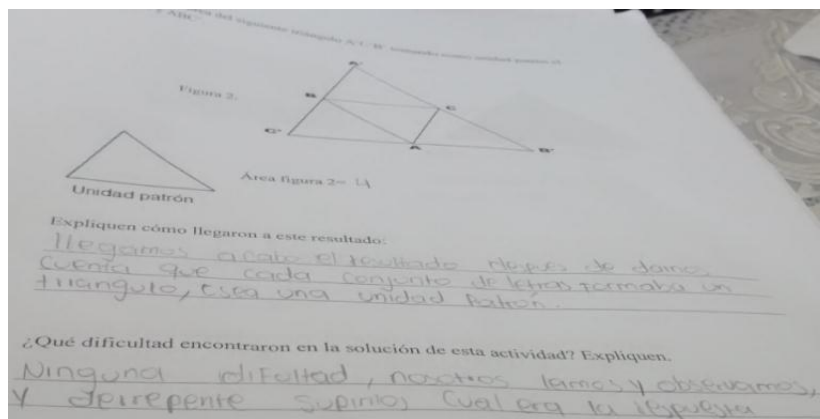 del siguiente triángulo A'C'B' tomando como unidad patrón el
ABC
Figura 2.
A'
B
C
C'
A
B'
Unidad patrón
Área figura 2= 4
Expliquen cómo llegaron a este resultado:
llegamos acabo el resultado de darnos
cuenta que cada conjunto de letras formaba un
triangulo, osea una unidad Patrón.
¿Qué dificultad encontraron en la solución de esta actividad? Expliquen.
Ninguna difcultad, nosotros y observamos,
Y derrepente supimos cual era la respuesta